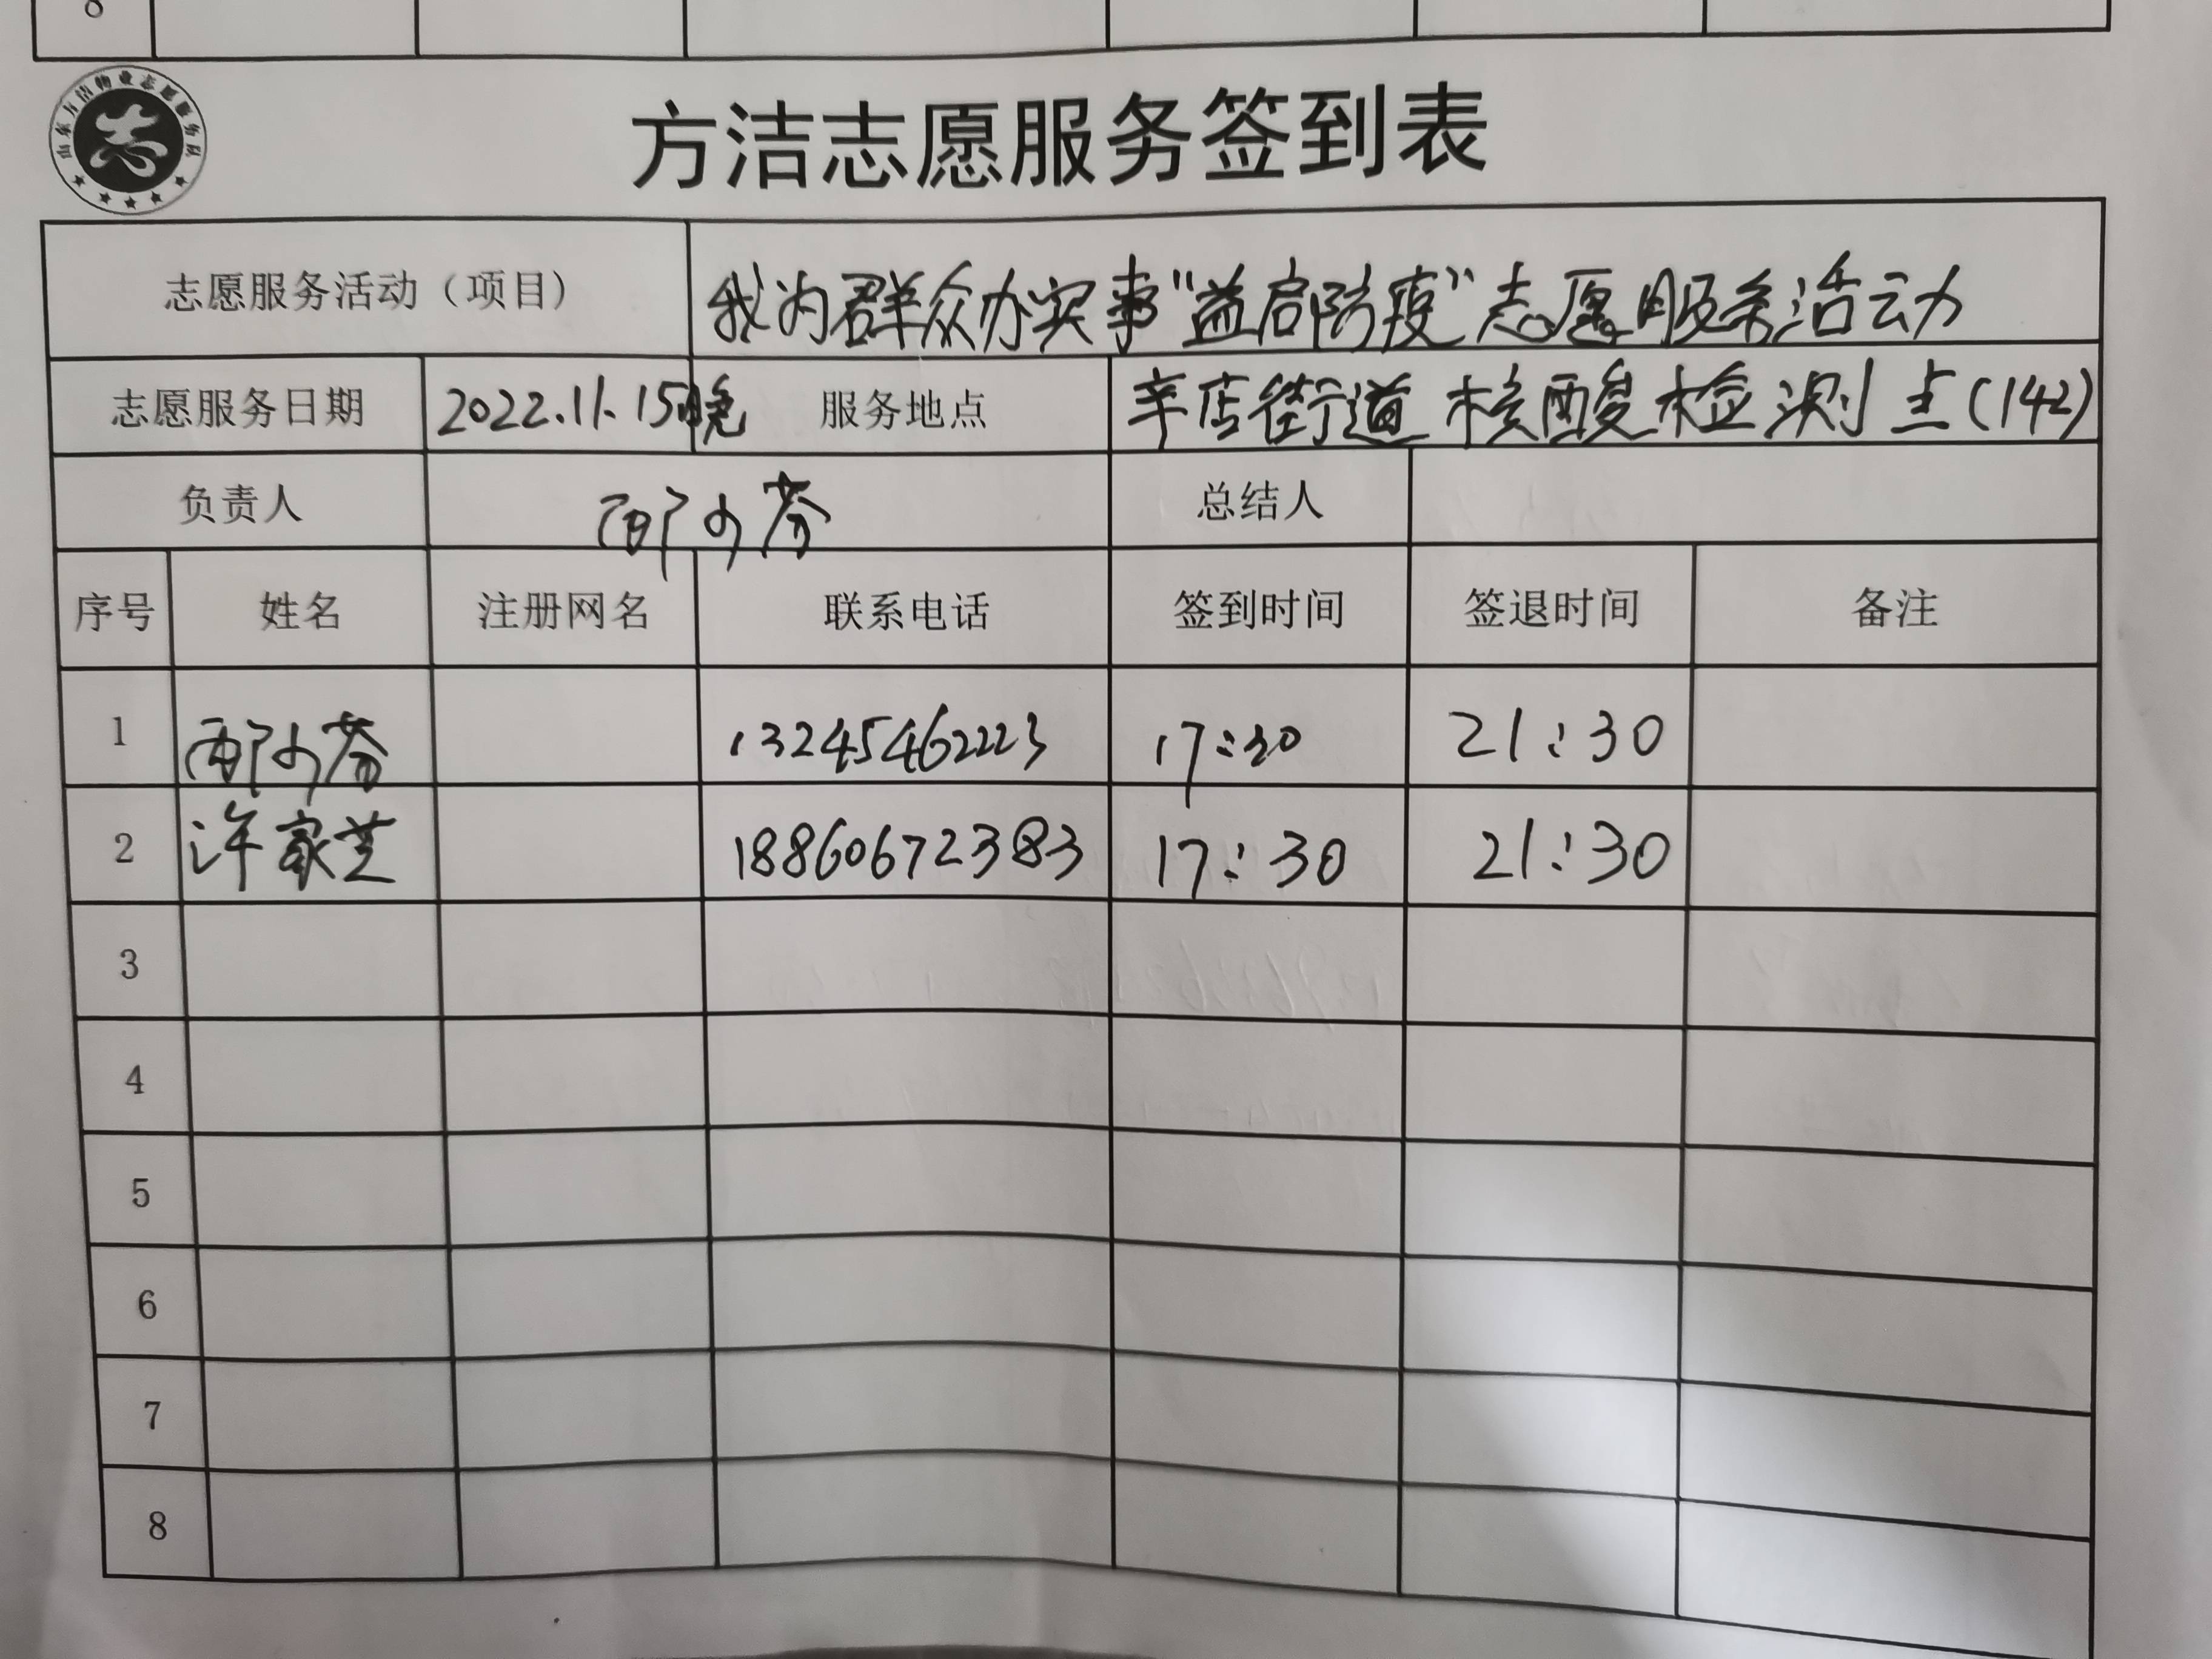 8
山东方洁物业志愿服务队
志
方洁志愿服务签到表
志愿服务活动（项目） 我为群众办实事“益启防疫”志愿服务活动
志愿服务日期 2022.11.15晚 服务地点 辛店街道核酸检测点(142)
负责人 邴小芬 总结人
序号 姓名 注册网名 联系电话 签到时间 签退时间 备注
1 邴小芬 13245462223 17:30 21:30
2 许家芝 18860672383 17:30 21:30
3
4
5
6
7
8